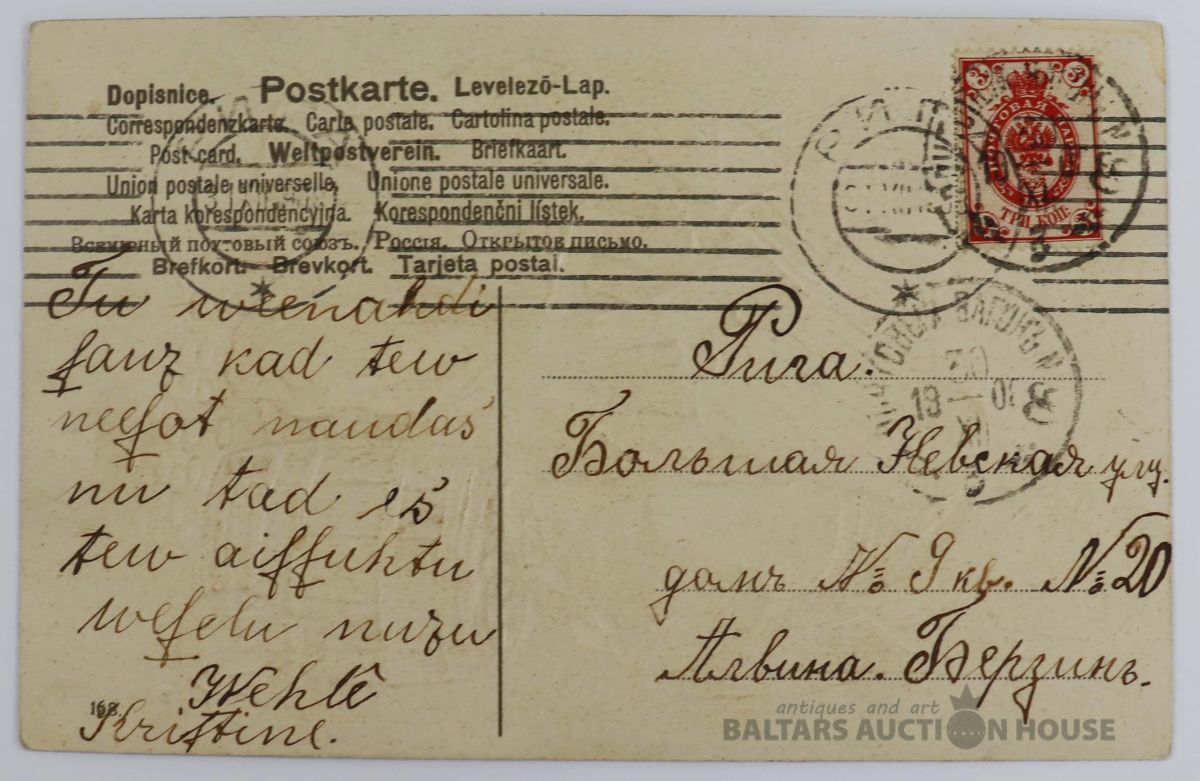 Dopisnice. Postkarte. Levelező-Lap.
Correspondenzkarte. Carte postale. Cartolina postale.
Post-card. Weltpostverein. Briefkaart.
Union postale universelle. Unione postale universale.
Karta korespondencyjna. Korespondenčni lístek.
Всемирный почтовый союзъ. Россія. Открытое письмо.
Brefkort. Brevkort. Tarjeta postal.
Tu weenahdi
kad tew
naudas
nu tad es
tew aifſuhtu
weſelu
Kriſtine.
168
3 3
ТРИ КОП.
РИГА
ПОЧТОВЫЙ ВАГОНЪ N
30
19 01
8
3
Рига.
Большая Невская улц.
домъ № 9 кв. № 20
Алвина. Берзинь.
antiques and art
BALTARS AUCTION HOUSE